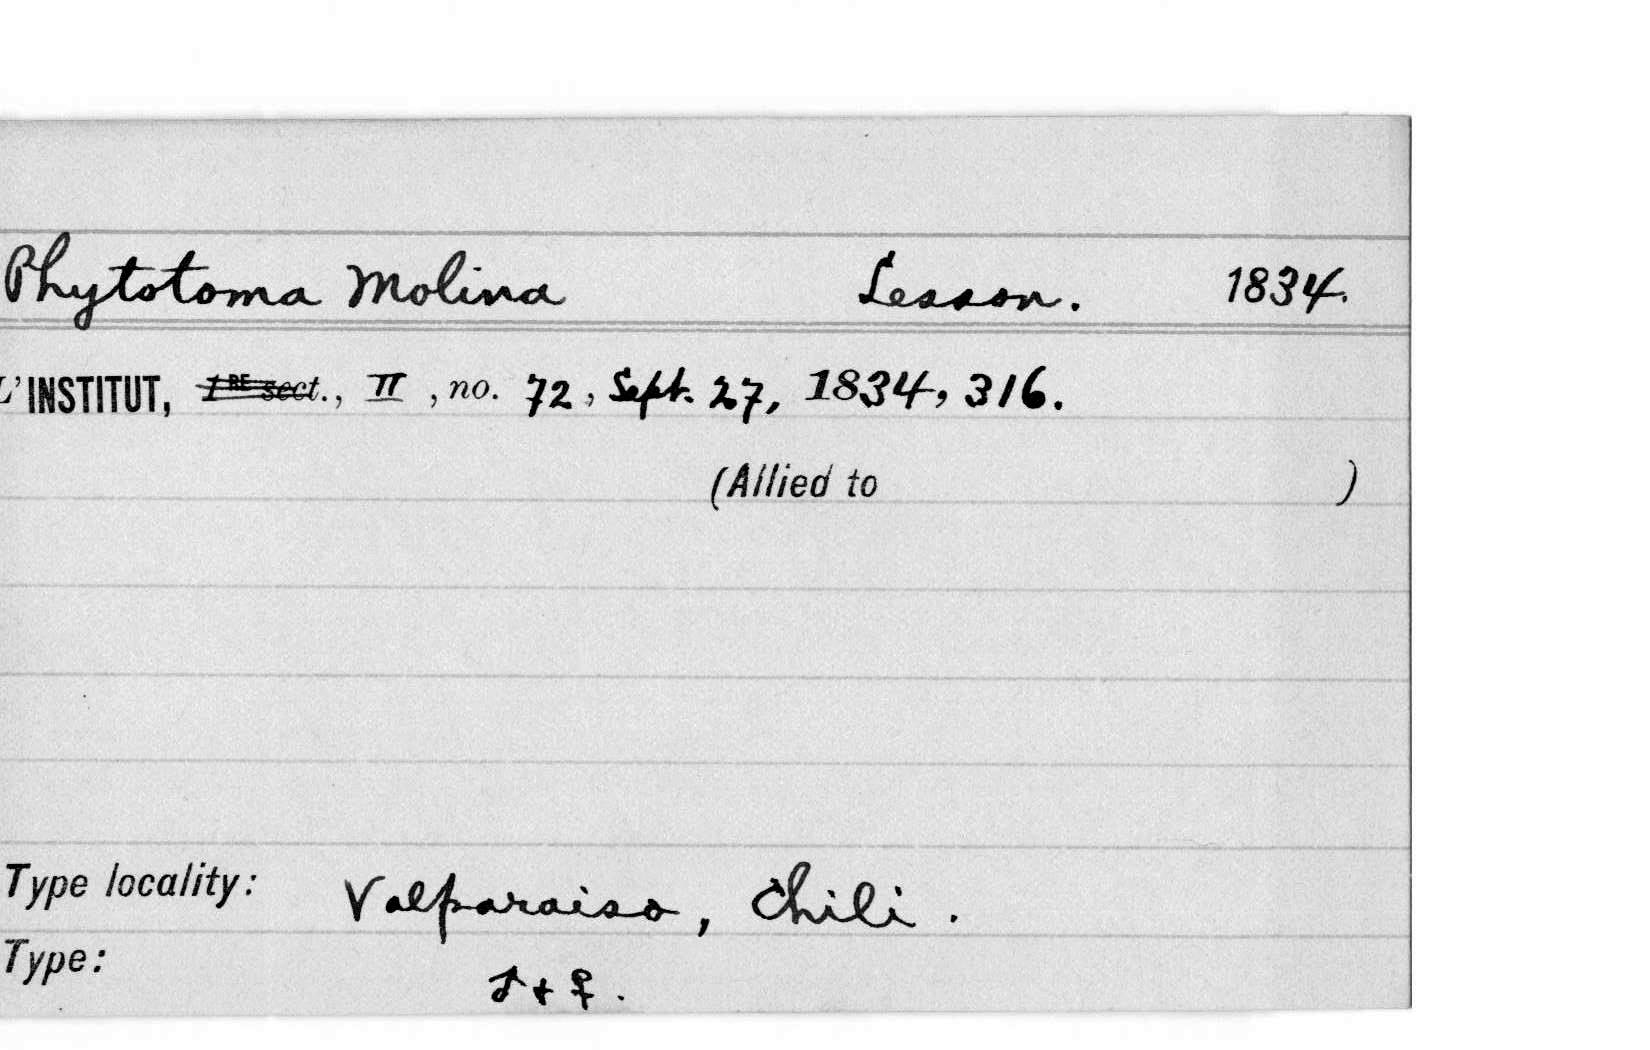 Phytotoma Molina Lesson. 1834.
L'INSTITUT, 1RE sect., II, no. 72, Sept. 27, 1834, 316.
(Allied to )
Type locality: Valparaiso, Chili.
Type: ♂ + ♀.